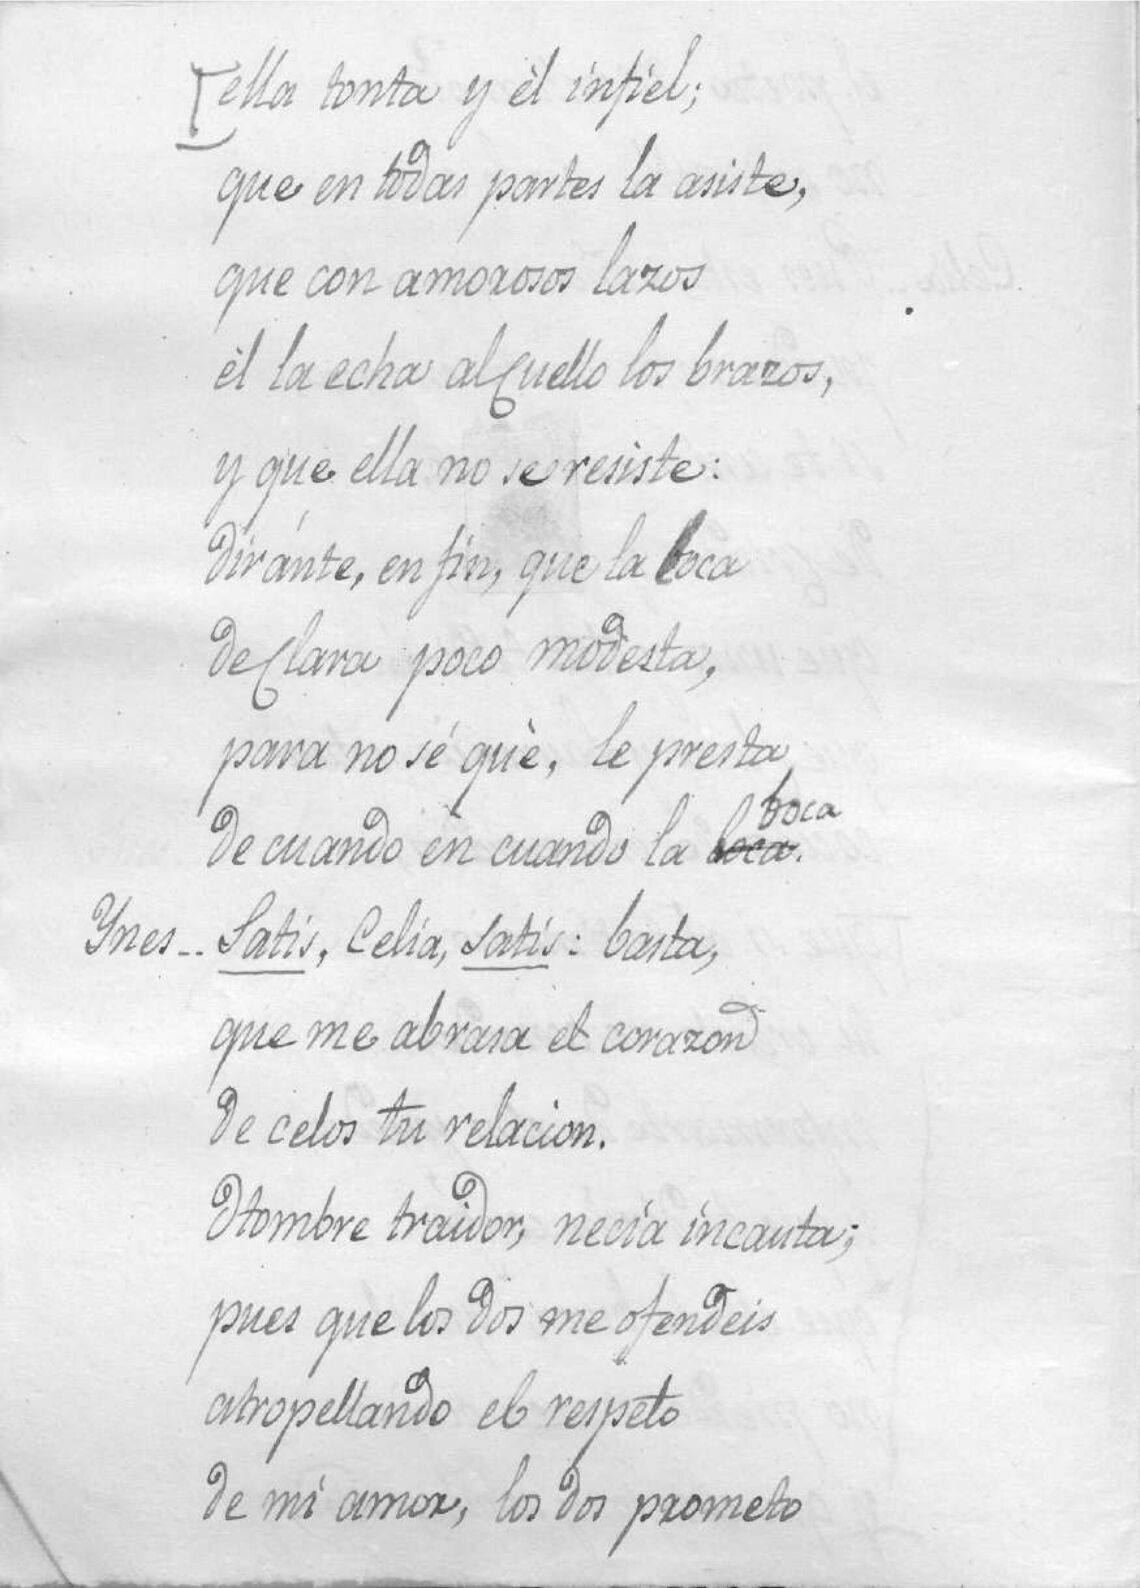 ella tonta y èl infiel;
que en todas partes la asiste,
que con amorosos lazos
èl la echa al Cuello los brazos,
y que ella no se resiste:
diránte, en fin, que la boca
de Clara poco modesta,
para no sé què, le presta
boca
de cuando en cuando la boca.
Ynes-- Satis, Celia, satis: basta,
que me abrasa el corazon
de celos tu relacion.
Hombre traidor, necia incauta;
pues que los dos me ofendeis
atropellando el respeto
de mi amor, los dos prometo